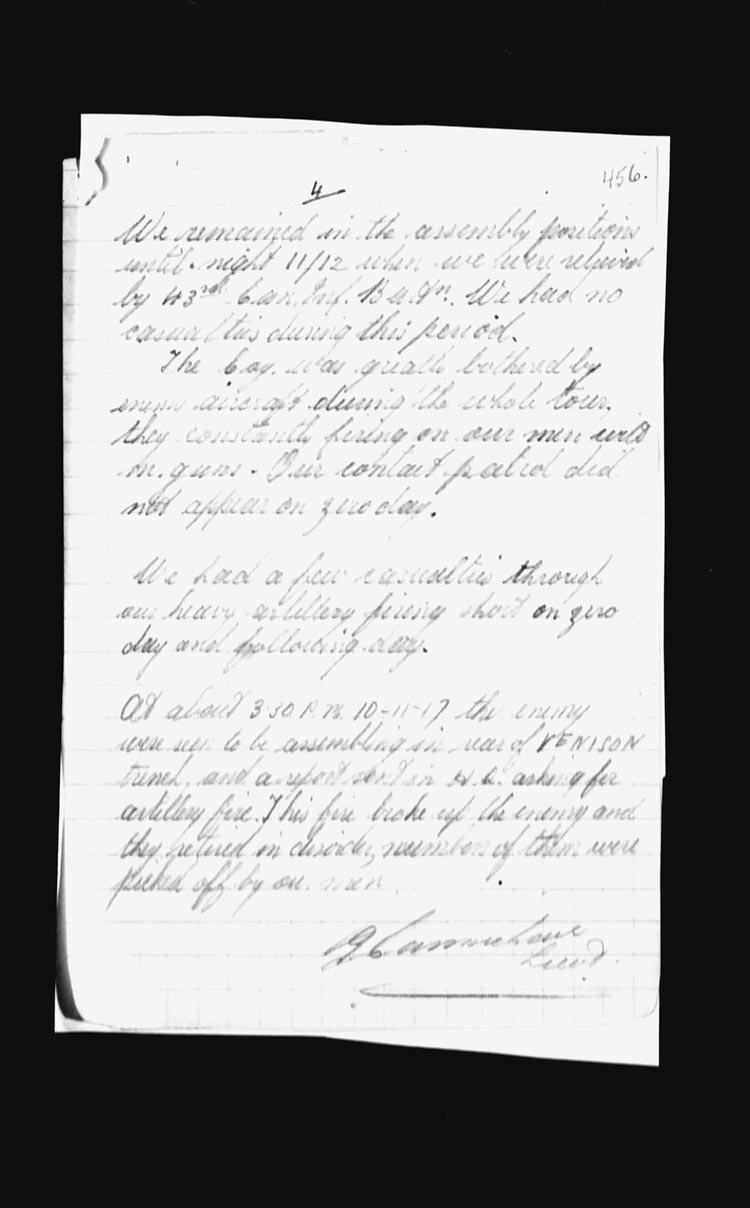 456.
4
We remained in the assembly positions
until night 11/12 when we were relieved
by 43rd Can. Inf. Battn. We had no
casualties during this period.
The Coy. was greatly bothered by
enemy aircraft during the whole tour,
they constantly firing on our men with
m. guns. Our contact patrol did
not appear on zero day.
We had a few casualties through
our heavy artillery firing short on zero
day and following day.
At about 3.30 P.M. 10-11-17 the enemy
were seen to be assembling in rear of VENISON
trench, and a report sent in asking for
artillery fire. This fire broke up the enemy and
they retired in disorder, numbers of them were
picked off by our men.
Lieut.